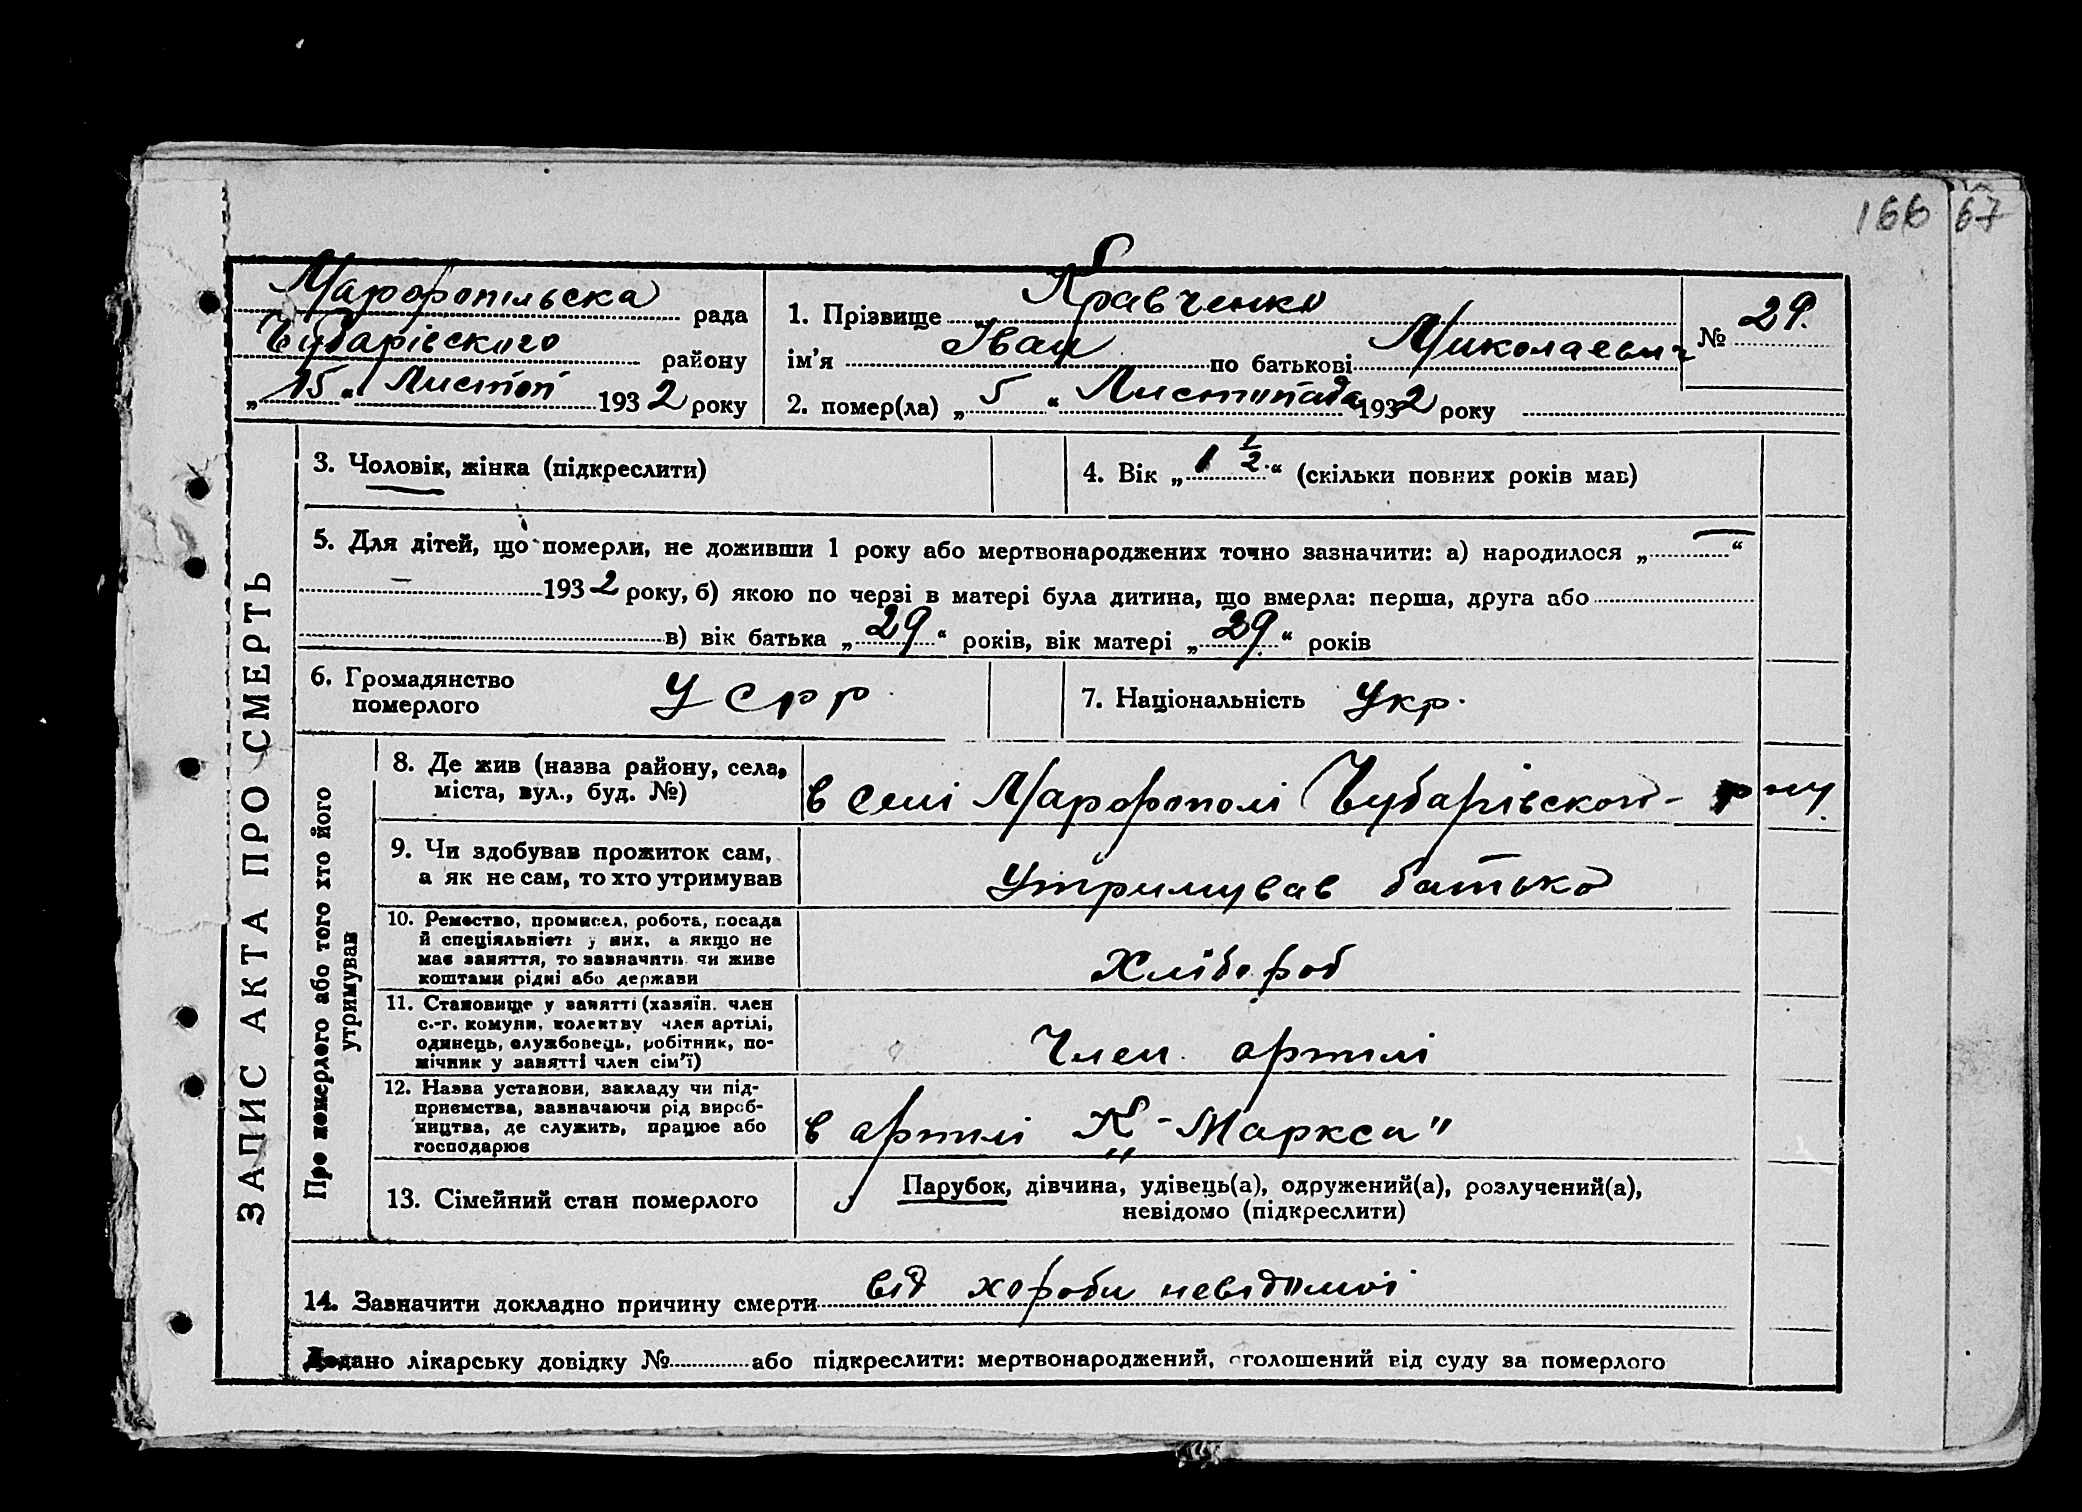 166 67
Марфопільська рада
Чубарівського району
„15“ Листоп 1932 року
1. Прізвище Кравченко
ім’я Іван по батькові Миколаевич
№ 29.
2. помер(ла) „5“ Листопада 1932 року
ЗАПИС АКТА ПРО СМЕРТЬ
3. Чоловік, жінка (підкреслити)
4. Вік „1 1/2.“ (скільки повних років має)
5. Для дітей, що померли, не доживши 1 року або мертвонароджених точно зазначити: а) народилося „—“
— 1932 року, б) якою по черзі в матері була дитина, що вмерла: перша, друга або
в) вік батька „29“ років, вік матері „29.“ років
6. Громадянство
померлого
УСРР
7. Національність Укр.
Про померлого або того хто його
утримував
8. Де жив (назва району, села,
міста, вул., буд. №)
в селі Марфополі Чубарівском р-ну.
9. Чи здобував прожиток сам,
а як не сам, то хто утримував
Утримував батько
10. Ремество, промисел, робота, посада
й спеціяльність у них, а якщо не
має заняття, то зазначить чи живе
коштами рідні або держави
Хлібороб
11. Становище у занятті (хазяїн, член
с.-г. комуни, колективу член артілі,
одинець, службовець, робітник, по-
мічник у занятті член сім’ї)
Член артилі
12. Назва установи, закладу чи під-
приємства, зазначаючи рід вироб-
ництва, де служить, працює або
господарює
в артилі „К-Маркса"
13. Сімейний стан померлого
Парубок, дівчина, удівець(а), одружений(а), розлучений(а),
невідомо (підкреслити)
14. Зазначити докладно причину смерти від хороби невідомоі
Додано лікарську довідку № або підкреслити: мертвонароджений, оголошений від суду за померлого